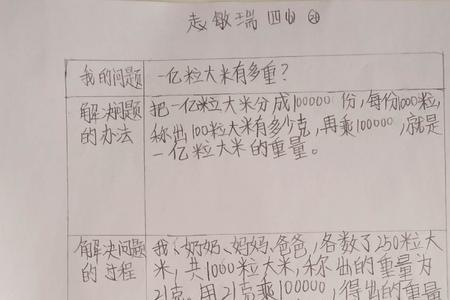 志敏瑞 四(1) 28
我的问题 一亿粒大米有多重?
解决问题的办法 把一亿粒大米分成100000份,每份1000粒,
称出100粒大米有多少克,再乘100000,就是
一亿粒大米的重量。
解决问题的过程 我、奶奶、妈妈、爸爸,各数了250粒大
米,共1000粒大米,称出的重量为
21克。用21克乘100000,得出的重量